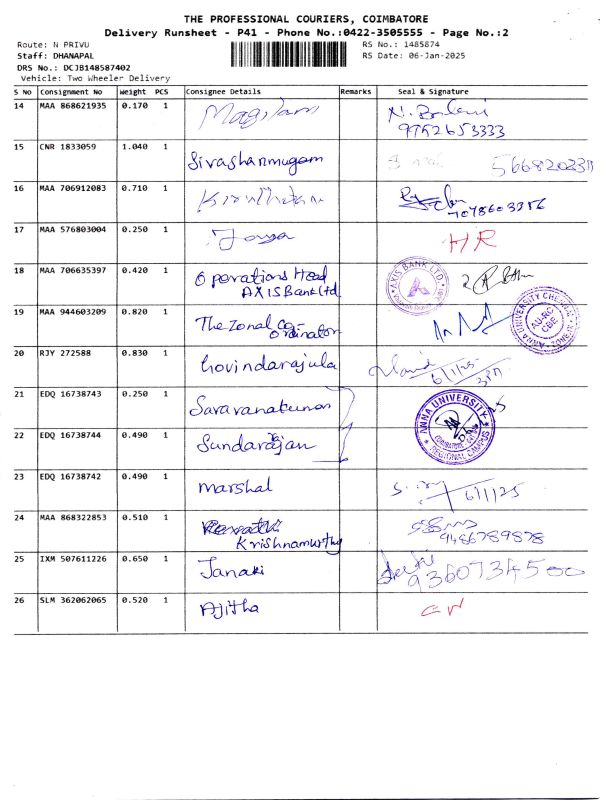 THE PROFESSIONAL COURIERS, COIMBATORE
Delivery Runsheet - P41 - Phone No.:0422-3505555 - Page No.:2
Route: N PRIVU RS No.: 1485874
Staff: DHANAPAL RS Date: 06-Jan-2025
DRS No.: DCJB148587402
Vehicle: Two Wheeler Delivery
S No Consignment No Weight PCS Consignee Details Remarks Seal & Signature
14 MAA 868621935 0.170 1
9752653333
15 CNR 1833059 1.040 1 Sivashanmugam
16 MAA 706912083 0.710 1
17 MAA 576803004 0.250 1 HR
18 MAA 706635397 0.420 1 Operations Head
AXIS Bank Ltd
AXIS BANK LTD.
19 MAA 944603209 0.820 1 The Zonal Co-
ordinator
ANNA UNIVERSITY CHENNAI
AU-RC
CBE
20 RJY 272588 0.830 1 Govindarajula
6/1/25
21 EDQ 16738743 0.250 1 Saravanakumar
ANNA UNIVERSITY
REGIONAL CAMPUS
22 EDQ 16738744 0.490 1 Sundarajan
23 EDQ 16738742 0.490 1 Marshal
6/1/25
24 MAA 868322853 0.510 1
Krishnamurthy
9486789878
25 IXM 507611226 0.650 1 Janaki
9360734500
26 SLM 362062065 0.520 1 Ajitha